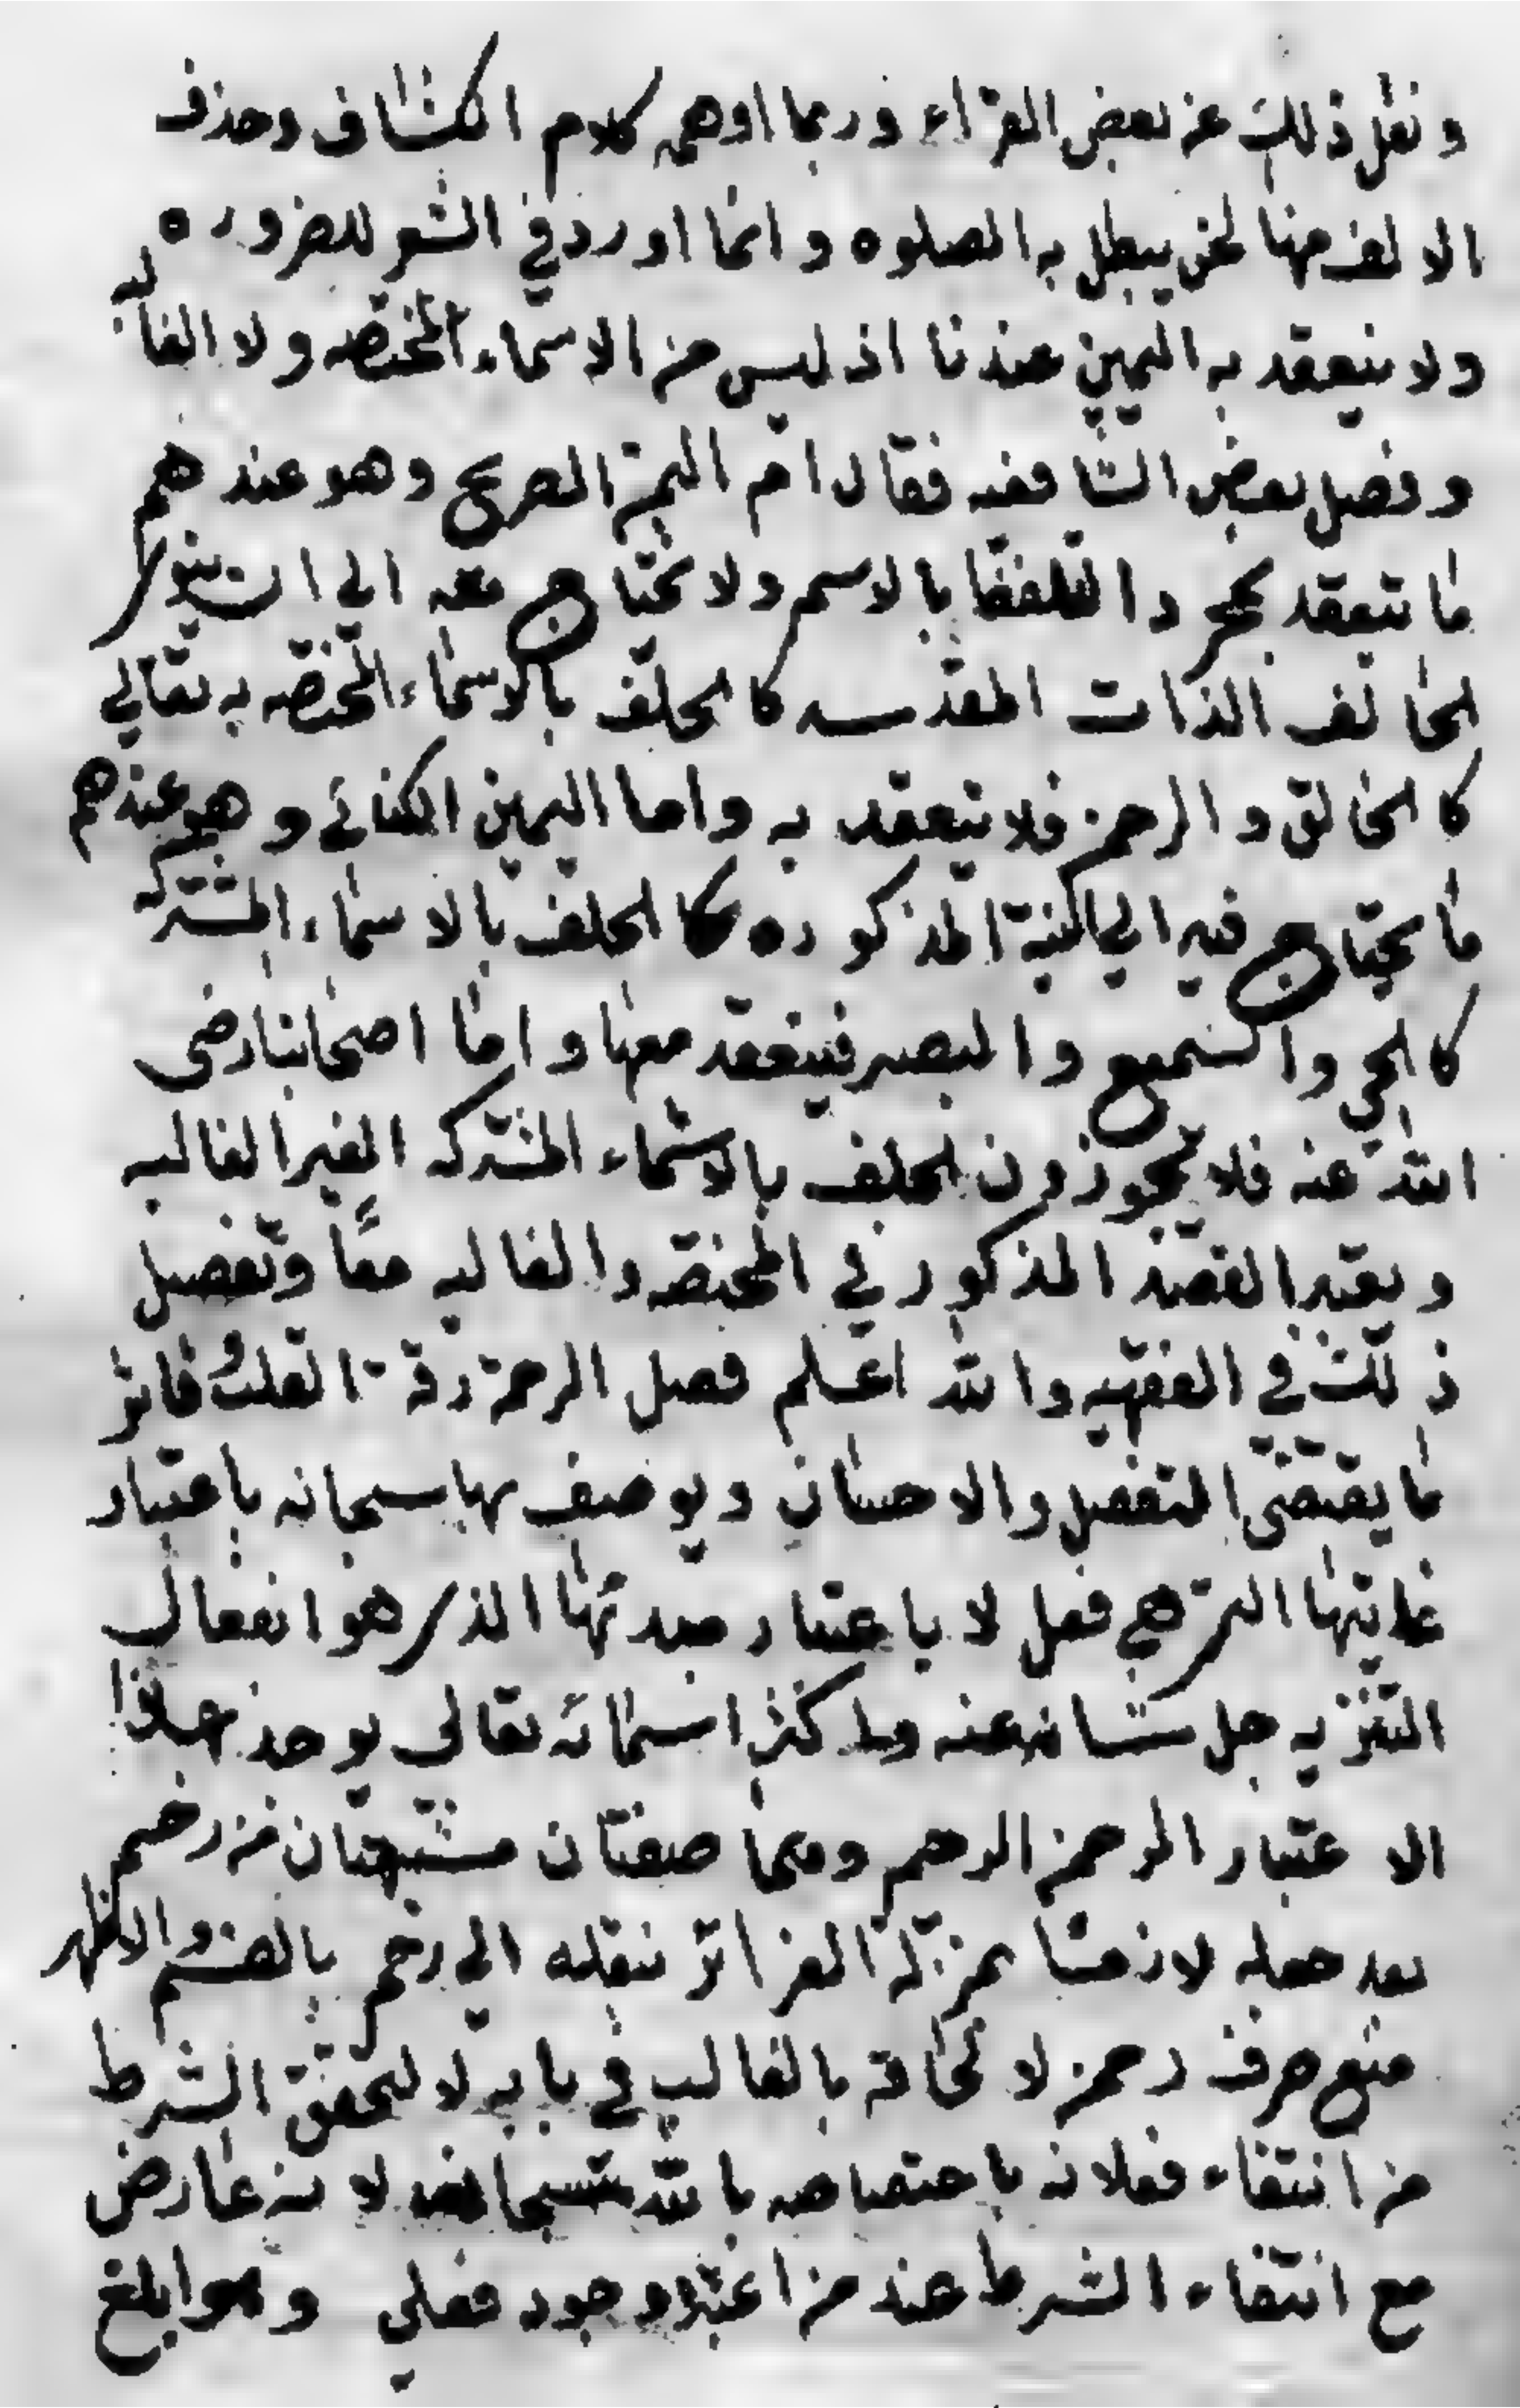 و نقل ذلك عن بعض القرّاء وربما اوهمه كلام الكشاف وحذف
الالف منها لحن يبطل به الصلوه و انما اورد في الشعر للضروره
ولا ينعقد به اليمين عندنا اذ ليس من الاسماء المختصه ولا الغالبه
و فصل بعض الشافعيه فقال ام اليمين الصريح وهو عندهم
ما ينعقد بمجرد التلفظ بالاسم ولا يحتاج معه الي ان ينوي
الحالف الذات المقدسه كالحلف بالاسماء المختصه به تعالي
كالخالق و الرحمن فلا ينعقد به واما اليمين الكنائي و هو عندهم
ما يحتاج فيه الي النية المذكوره كالحلف بالاسماء المشتركه
كالحي والسميع و البصير فينعقد معها و اما اصحابنا رضي
الله عنه فلا يجوزون الحلف بالاسماء المشتركه الغير الغالبه
و يعتبر القصد المذكور في المختصه والغالبه معًا وتفصيل
ذلك في الفقهيه والله اعلم فصل الرحمة رقة القلب وتاثر
ما يقتضي التفضل والاحسان ويوصف بها سبحانه باعتبار
غايتها التي هي فعل لا باعتبار مبدئها الذي هو انفعال
التنزيه جل شانه عنه و اكثر اسمائه تعالي يوخذ بهذا
الاعتبار الرحمن الرحيم وهما صفتان مشبهتان من رحم
بعد جعله لازما بمنزلة الغرائز بنقله الي رحم بالضم والاظهر
منع صرف رحمن لالحاقه بالغالب في بابه لا لتحقق الشرط
من انتفاء فعلانه باختصاصه بالله سبحانه لانه عارض
مع انتفاء الشرط عند من اعتبر وجود فعلي و هو ابلغ